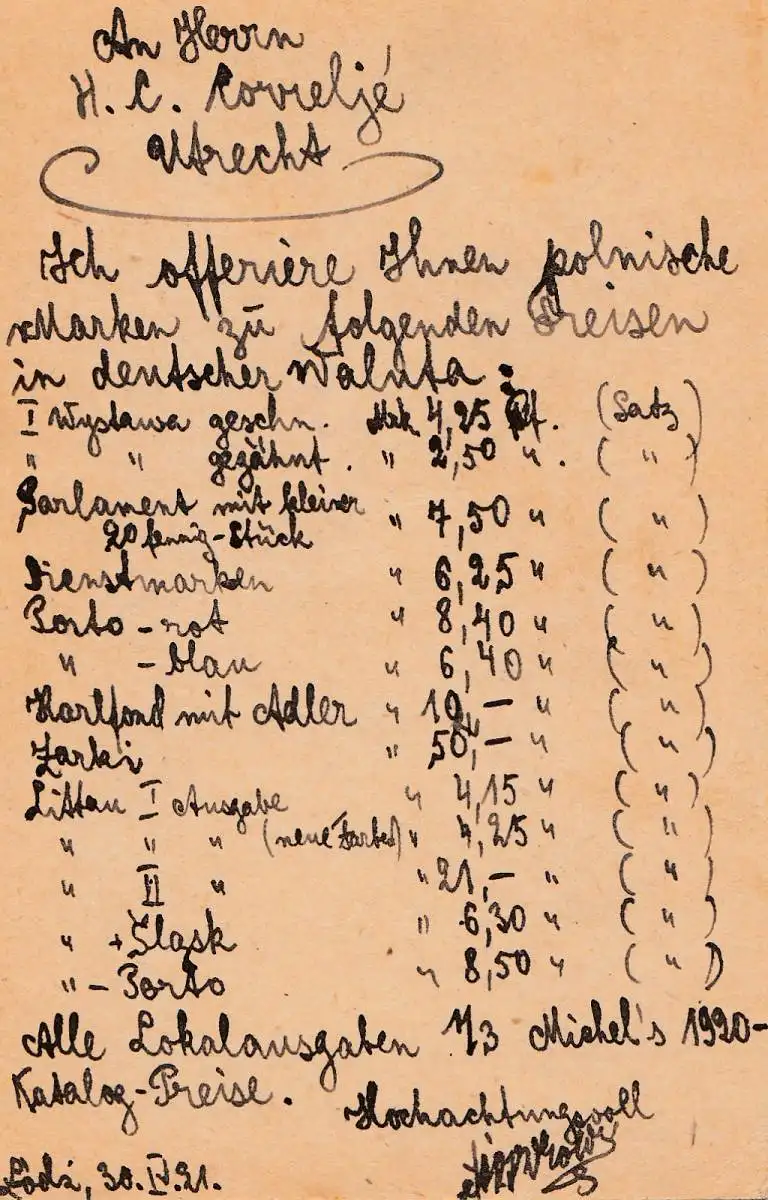 An Herrn
H. C. Correljé
Utrecht
Ich offeriere Ihnen polnische
Marken zu folgenden Preisen
in deutscher Waluta:
I Wystawa geschn. Mk. 4,25 Pf. (Satz)
" " gezähnt. " 2,50 ". ( " )
Parlament mit kleiner
20 fennig-Stück " 7,50 " ( " )
Dienstmarken " 6,25 " ( " )
Porto - rot " 8,40 " ( " )
" - blau " 6,40 " ( " )
mit Adler " 10,- " ( " )
Żarki " 50,- " ( " )
Littau I Ausgabe " 4,15 " ( " )
" " " (neue Farben) " 4,25 " ( " )
" II " " 21,- " ( " )
" + Śląsk " 6,30 " ( " )
" - Porto " 8,50 " ( " )
Alle Lokalausgaben 1/3 Michel's 1920-
Katalog-Preise.
Hochachtungsvoll
Łódź, 30.IV.21.